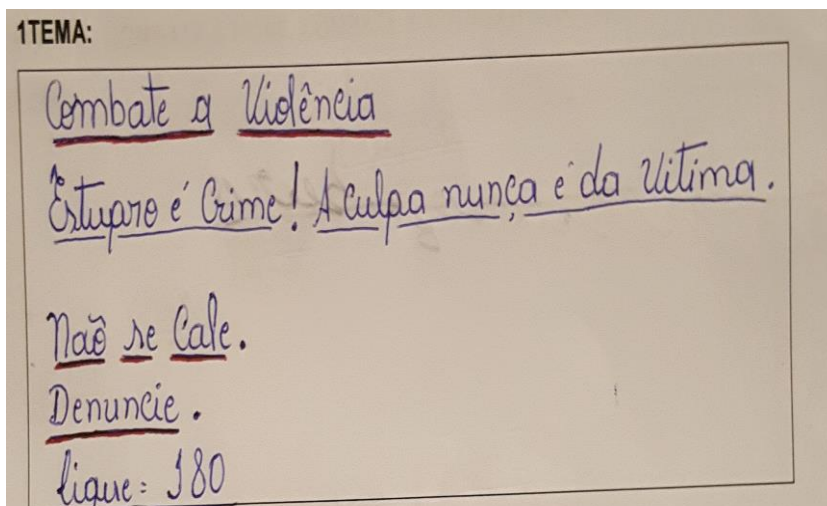 1TEMA:
Combate a Violência
Estupro é Crime! A culpa nunca é da Vitima.
Não se Cale.
Denuncie.
ligue: 180